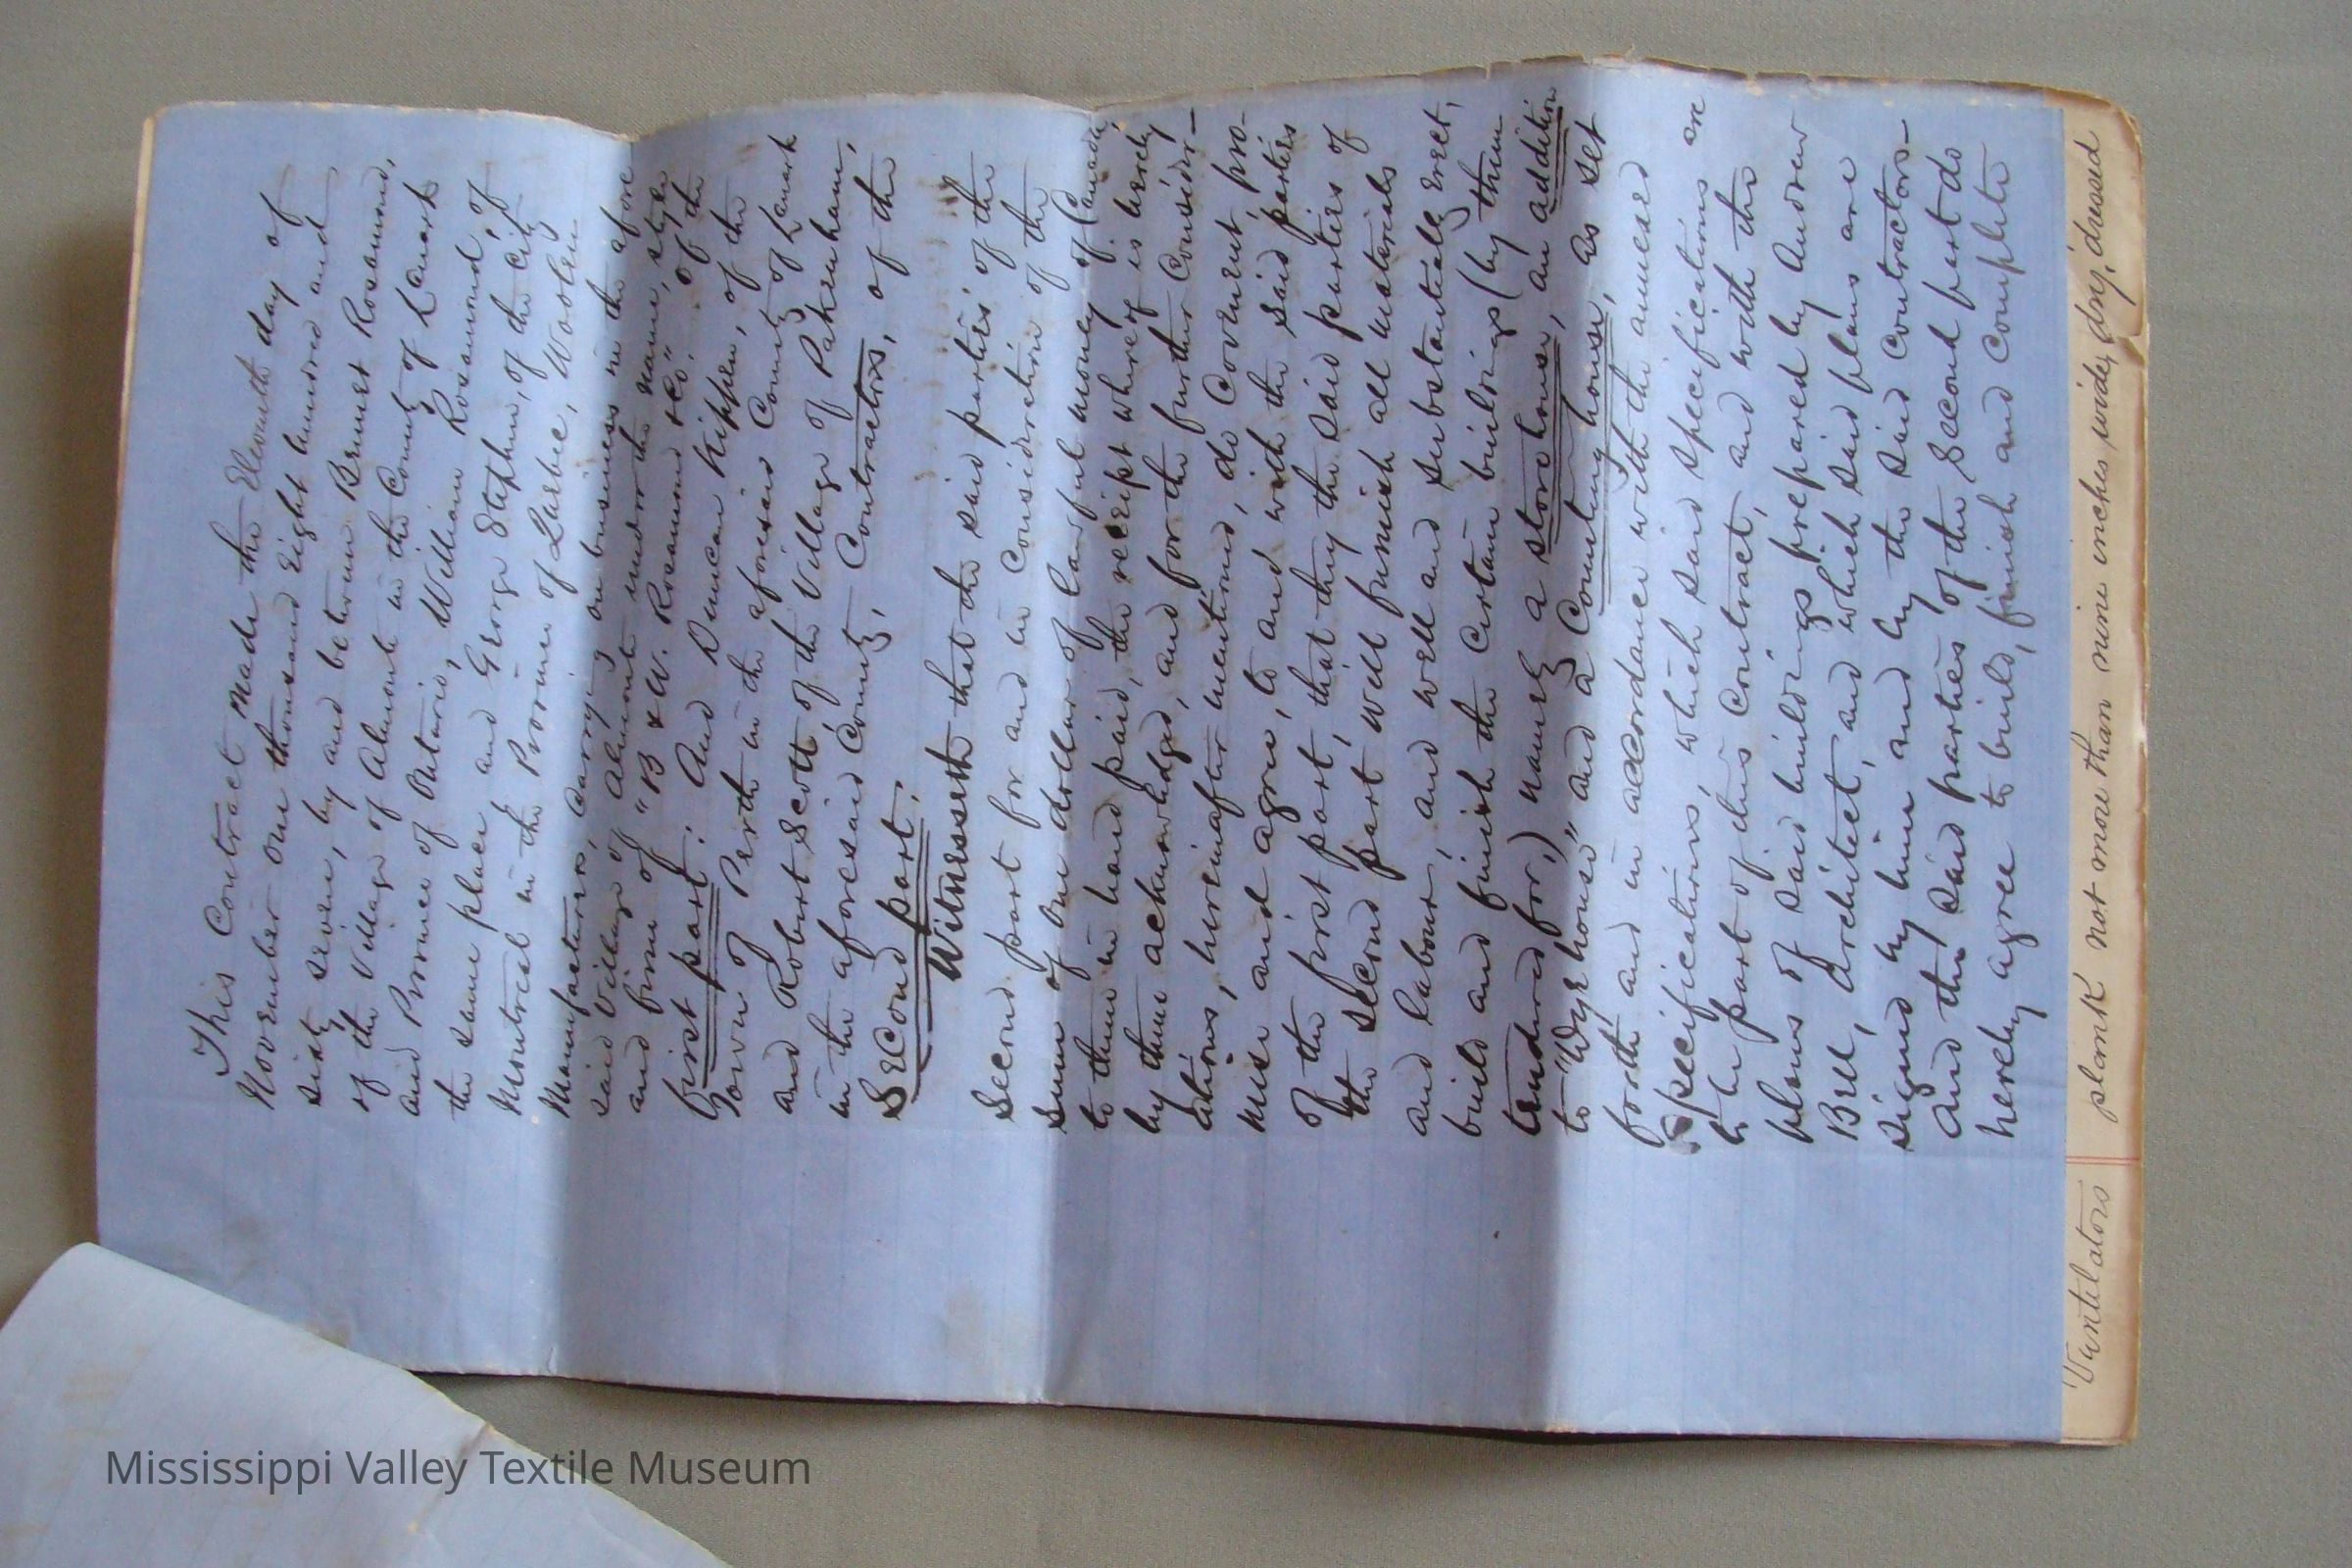 This Contract made the Eleventh day of
November one thousand Eight hundred and
sixty seven, by and between Bennet Rosamond,
of the Village of Almonte in the County of Lanark
and Province of Ontario, William Rosamond, of
the same place and George Stephen, of the City
Montreal in the Province of Quebec, Woolen
Manufacturers, carrying on business in the afore
said Village of Almonte under the name, style
and firm of "B & W. Rosamond & Co." of the
first part: And Duncan Kippen, of the
Town of Perth in the aforesaid County of Lanark
and Robert Scott, of the Village of Pakenham,
in the aforesaid County, Contractors, of the
Second part.
Witnesseth that the said parties of the
second part for and in consideration of the
sum of one dollar of lawful money of Canada,
to them in hand paid, the receipt whereof is hereby
by them acknowledged, and for the further consider-
ations, hereinafter mentioned, do Covenant, pro-
mise and agree, to and with the said parties
of the first part, that they the said parties of
the second part, will furnish all materials
and labour, and well and substantially erect,
build and finish the certain buildings (by them
tendered for,) namely a storehouse, an addition
to "Dye house" and a Counting house, as set
forth and in accordance with the annexed
Specifications, which said specifications are
to be part of this Contract, and with the
plans of said buildings prepared by Andrew
Bell, Architect, and which said plans are
signed by him and by the said Contractors-
And the said parties of the second part do
hereby agree to build, finish and complete
Ventilators plank not more than nine inches wide, dry, dressed
Mississippi Valley Textile Museum